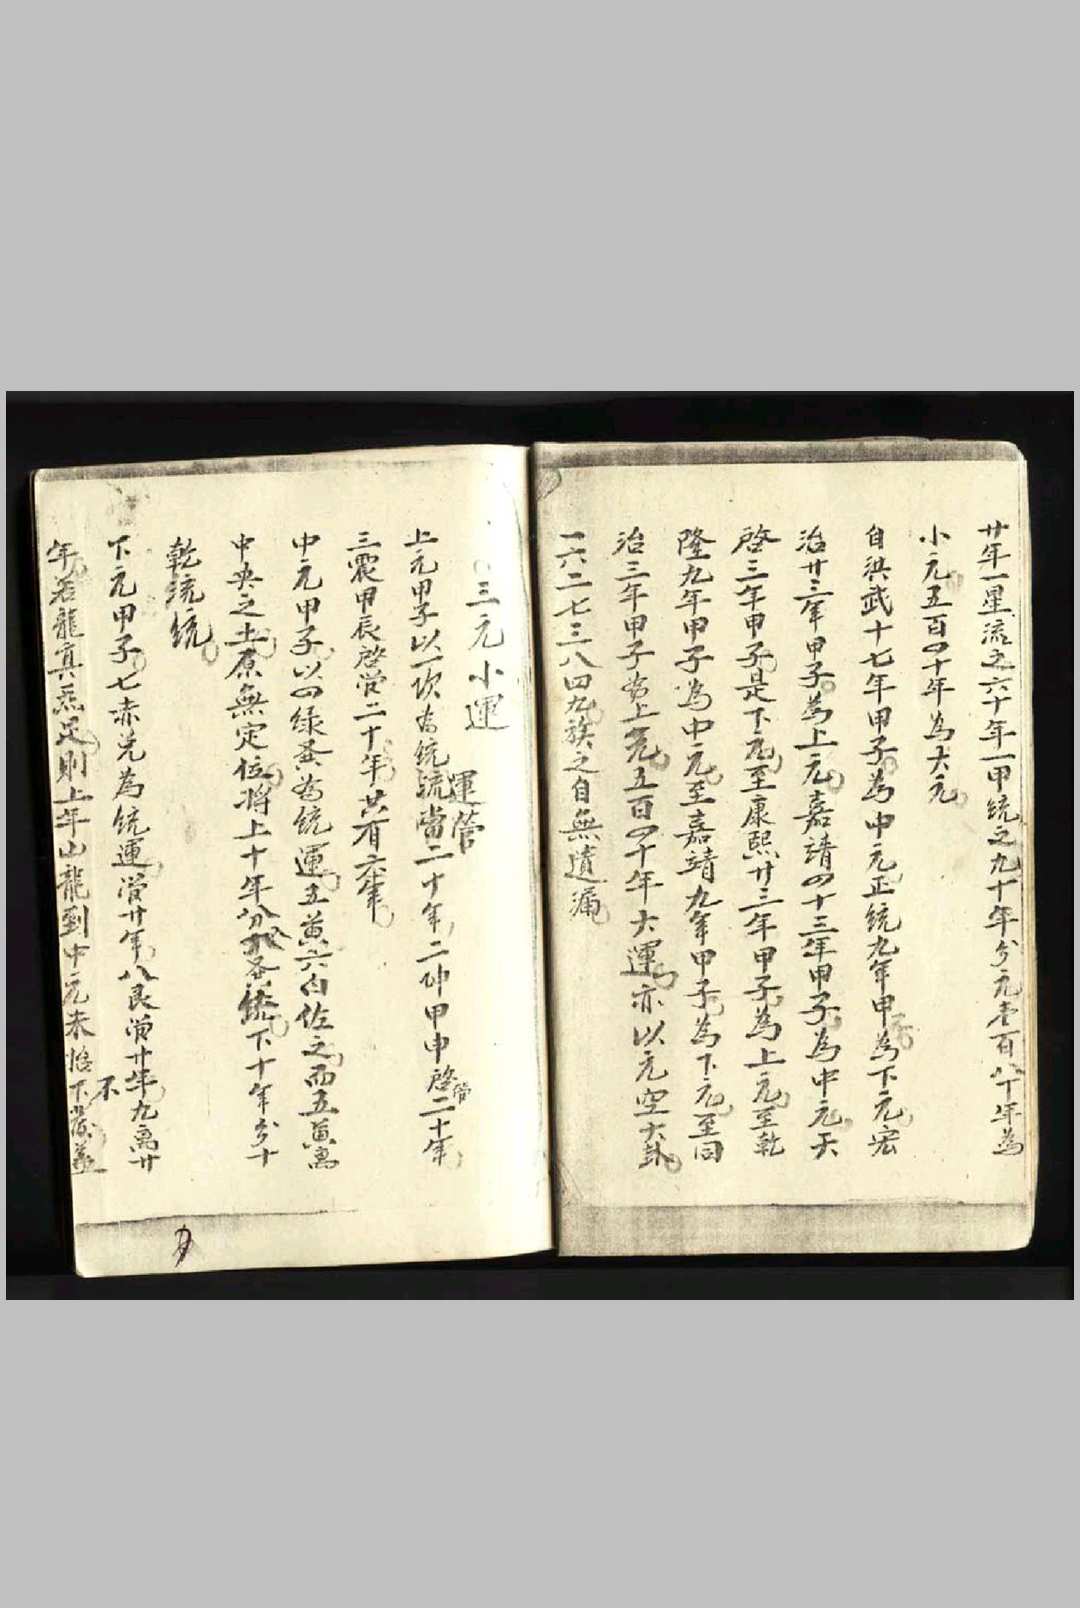 廿年一星流之六十年一甲統之九十年分元壱百八十年為
小元五百四十年為大元
自洪武十七年甲子為中元正統九年甲為下元宏
治廿三年甲子為上元嘉靖四十三年甲子為中元天
啓三年甲子是下元至康熙廿三年甲子為上元至乾
隆九年甲子為中元至嘉靖九年甲子為下元至同
治三年甲子為上元五百四十年大運亦以元空大卦
一六二七三八四九族之自無遺漏
三元小運
上元甲子以一坎為統運管二十年二坤甲申啓管二十年
三震甲辰啓管二十年共有六年
中元甲子以四綠為統運五黄六白佐之而五黄寓
中央之土原無定位將上十年分巽統下十年分十
乾統統
下元甲子七赤兌為統運管廿年八艮管廿年九离廿
年若龍真炁足則上年山龍到中元未怕下不